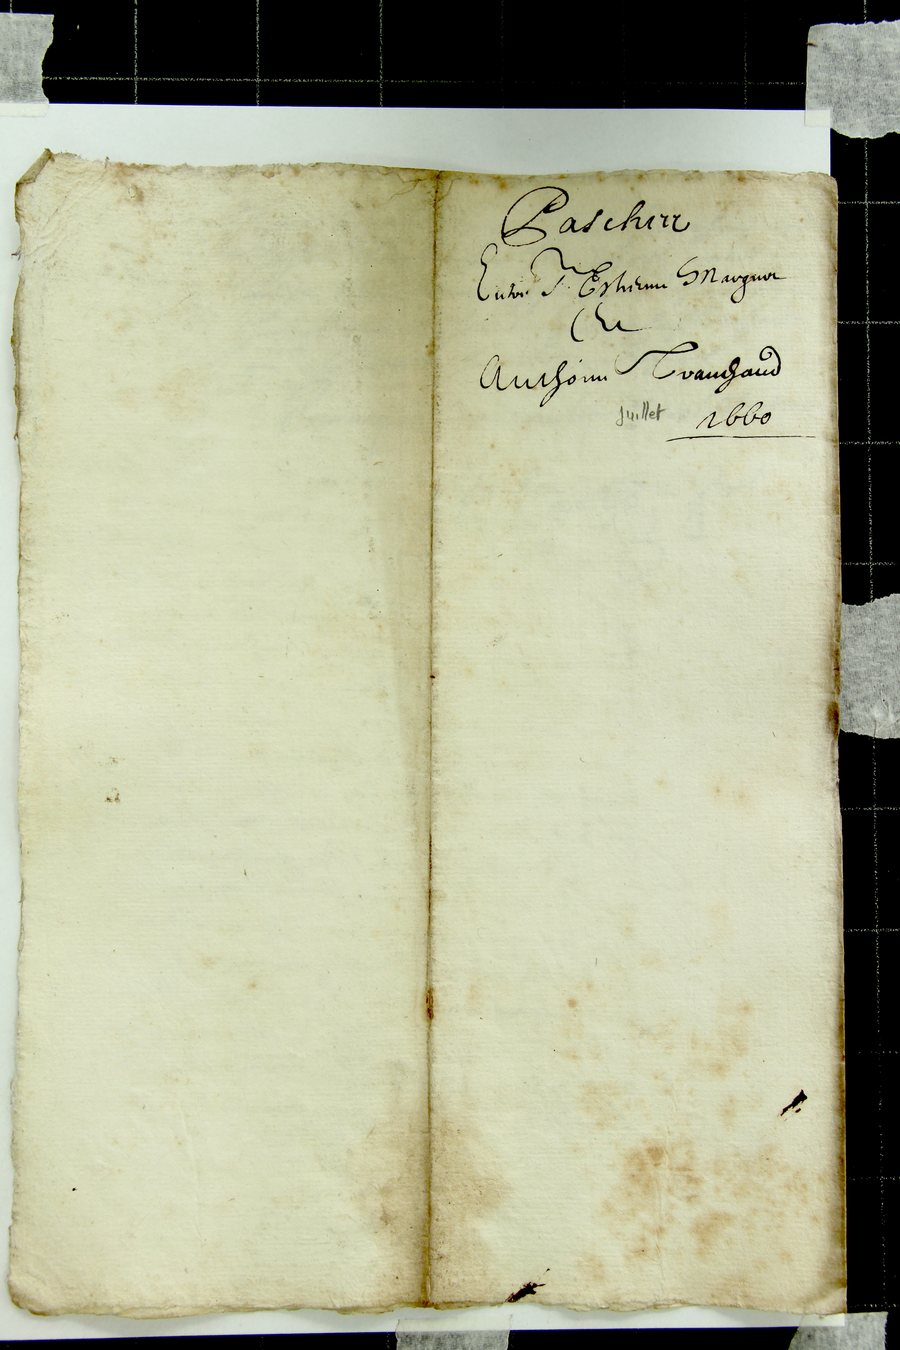 Pascherr
Entre Sr Esthienne Magnan
Et
Anthoine Tranchand
Juillet 1660